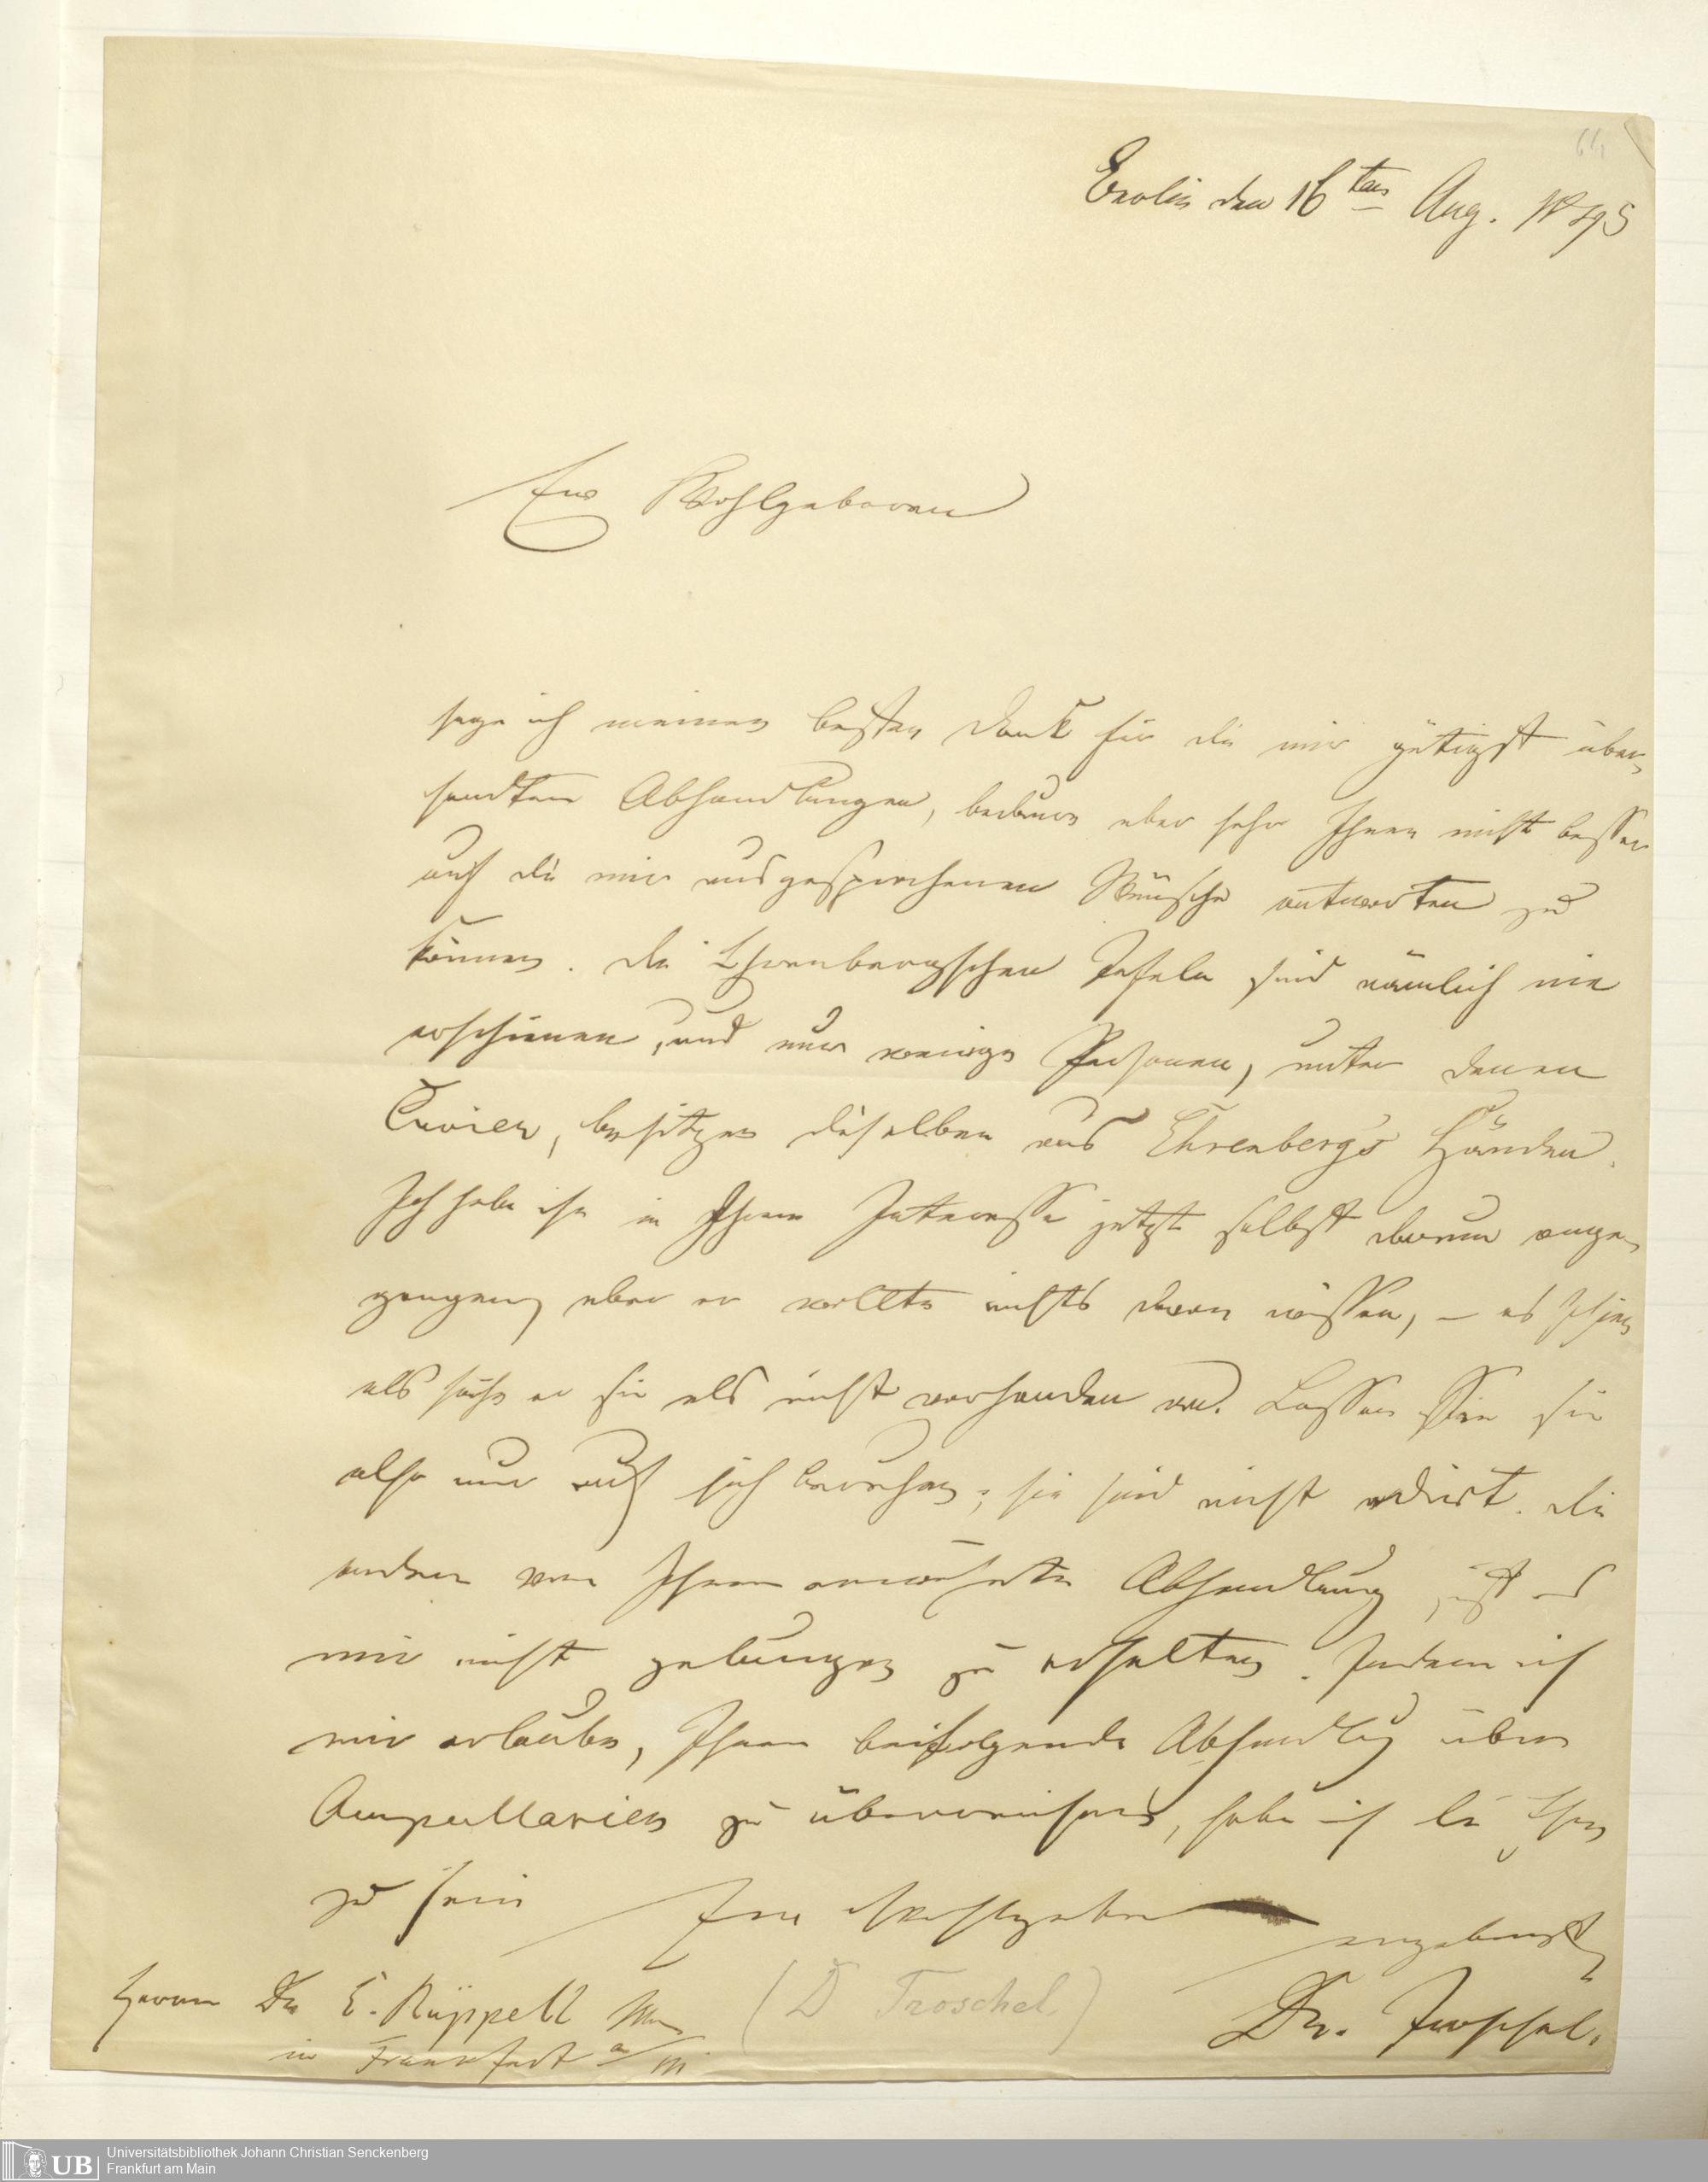 64
Berlin den 16ten Aug. 1845
Ew Wohlgeboren
sage ich meinen besten Dank für die mir gütigst über-
sandten Abhandlungen, bedaure aber sehr Ihnen nicht besser
auf die mir ausgesprochenen Wünsche antworten zu
können. Die Ehrenbergschen Tafeln sind nämlich nie
erschienen, und nur wenige Personen, unter denen
Cuvier, besitzen dieselben aus Ehrenberg's Händen.
Ich habe ihn in Ihrem Interesse jetzt selbst darum ange-
gangen, aber er wollte nichts davon wissen, – es schien
als sähe er sie als nicht vorhanden an. Lassen Sie sie
also nur auf sich beruhen; sie sind nicht edirt. Die
andere von Ihnen erwähnte Abhandlung, ist es
mir nicht gelungen zu erhalten. Indem ich
mir erlaube, Ihnen beifolgende Abhandlg über
Ampullarien zu überreichen, habe ich die Ehre
zu sein Ew Wohlgeboren
ergebenster
Dr. Troschel.
Herrn Dr E. Rüppell
in Frankfurt a/M
(D Troschel)
UB Universitätsbibliothek Johann Christian Senckenberg
Frankfurt am Main